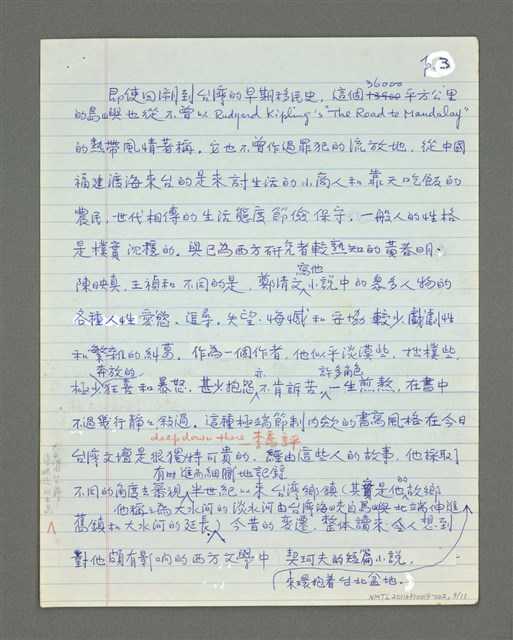 P3
即使回溯到台灣的早期移民史，這個36000平方公里
的島嶼也從不曾以Rudyard Kipling's "The Road to Mandalay"
的熱帶風情著稱，它也不曾作過罪犯的流放地，從中國
福建渡海來台的是來討生活的小商人和靠天吃飯的
農民，世代相傳的生活態度節儉保守，一般人的性格
是樸實沉穩的。與已為西方研究者較熟知的黃春明、
陳映真、王禎和不同的是，鄭清文寫他小說中的眾多人物的
各種人性愛慾、追尋、失望、悔憾和妥協較少戲劇性
和繁雜的糾葛。作為一個作者，他似乎淡漠些，拙樸些，
極少奔放的狂喜和暴怒，甚少抱怨，亦不肯訴苦，許多角色一生煎熬，在書中
不過幾行靜靜敘過。這種極端節制內斂的書寫風格在今日
deep down there 李喬評
台灣文壇是很獨特可貴的，經由這些人的故事，他採取
不同的角度去審視，有時進而細膩地記錄半世紀以來台灣鄉鎮（其實是他的故鄉
他稱之為大水河的淡水河由台灣海峽自島嶼北端伸進
舊鎮和大水河的延長）今昔的變遷，整体讀來令人想到
對他頗有影响的西方文學中 契珂夫的短篇小說，
來環抱着台北盆地。
NMTL20110910014-002, 9/11